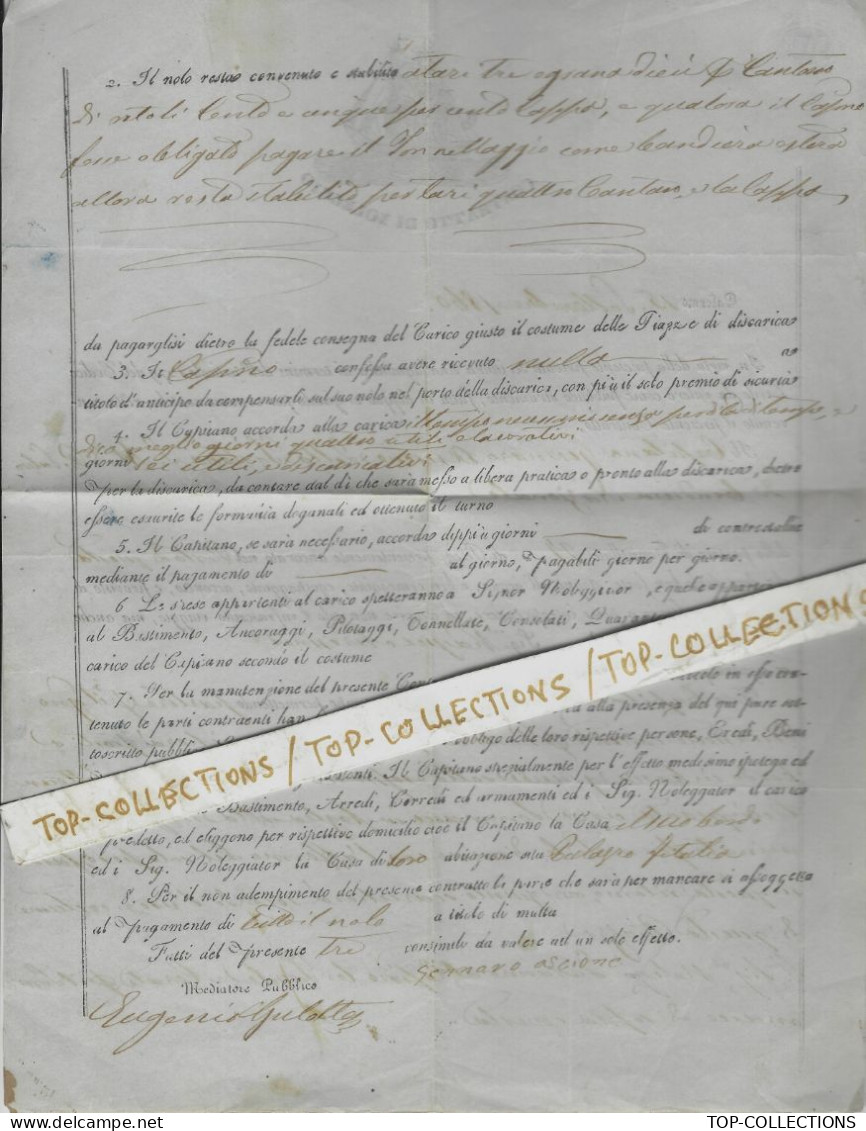 2. Il nolo resta convenuto e stabilito a tari tre e grana dieci p% Cantaro
di rotoli Cento e cinque per cento Cappa, e qualora il Cap.no
fosse obligato pagare il Tonnellaggio come bandiera estera
allora resta stabilito per tari quattro Cantaro, e la Cappa
da pagarglisi dietro la fedele consegna del Carico giusto il costume delle Piazze di discarica
3. Il Cap.no confessa avere ricevuto nulla a
titolo d'anticipo da compensarli sul suo nolo nel porto della discarica, con più il solo premio di sicurtà
4. Il Capitano accorda alla carica il tempo
dico meglio giorni quattro utili e lavorativi
giorni sei utili, e discaricativi
per la discarica, da contare dal dì che sarà messo a libera pratica e pronto alla discarica, dietro
essere esaurite le formalità doganali ed ottenuto il turno
5. Il Capitano, se sarà necessario, accorda dippiù giorni di controstallie
mediante il pagamento di al giorno, pagabili giorno per giorno.
6 Le spese appartenti al carico spetteranno a Signor Noleggiator, e quelle
al Bastimento, Ancoraggi, Pilotaggi, Tonnellate, Consolati,
carico del Capitano secondo il costume
7. Per la manutenzione del presente in esso con-
tenuto le parti contraenti alla presenza del qui pure sot-
toscritto obbligo delle loro rispettive persone, Eredi, Beni
Il Capitano specialmente per l'effetto medesimo ipoteca ed
Bastimento, Arredi, Corredi ed armamenti ed i Sig. Noleggiator il carico
predetto, ed eliggono per rispettivo domicilio cioè il Capitano la Casa il suo bordo
ed i Sig. Noleggiator la Casa di loro abitazione sita
8. Per il non adempimento del presente contratto la parte che sarà per mancare si assoggetta
al pagamento di tutto il nolo a titolo di multa
Fatti del presente tre consimile da valere ad un solo effetto.
Gennaro Ascione
Mediatore Pubblico
Eugenio Gulotta
TOP-COLLECTIONS / TOP-COLLECTIONS / TOP-COLLECTIONS /TOP-COLLECTIONS
TOP-COLLECTIONS